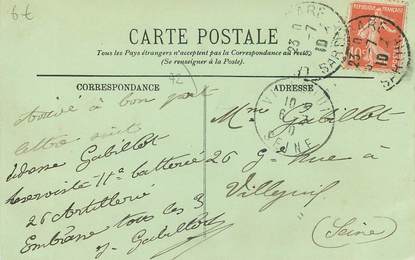 6€
CARTE POSTALE
Tous les Pays étrangers n'acceptent pas la Correspondance au Recto
(Se renseigner à la Poste).
CORRESPONDANCE
ADRESSE
92
Arrivé à bon port
lettre suit
adresse Gabillot
reserviste 11e batterie
26 Artillerie
Embrasse tous les 3
Gabillot
Gabillot
26 Gde Rue à
Villejuif
(Seine)
GARE
SEINE
10c